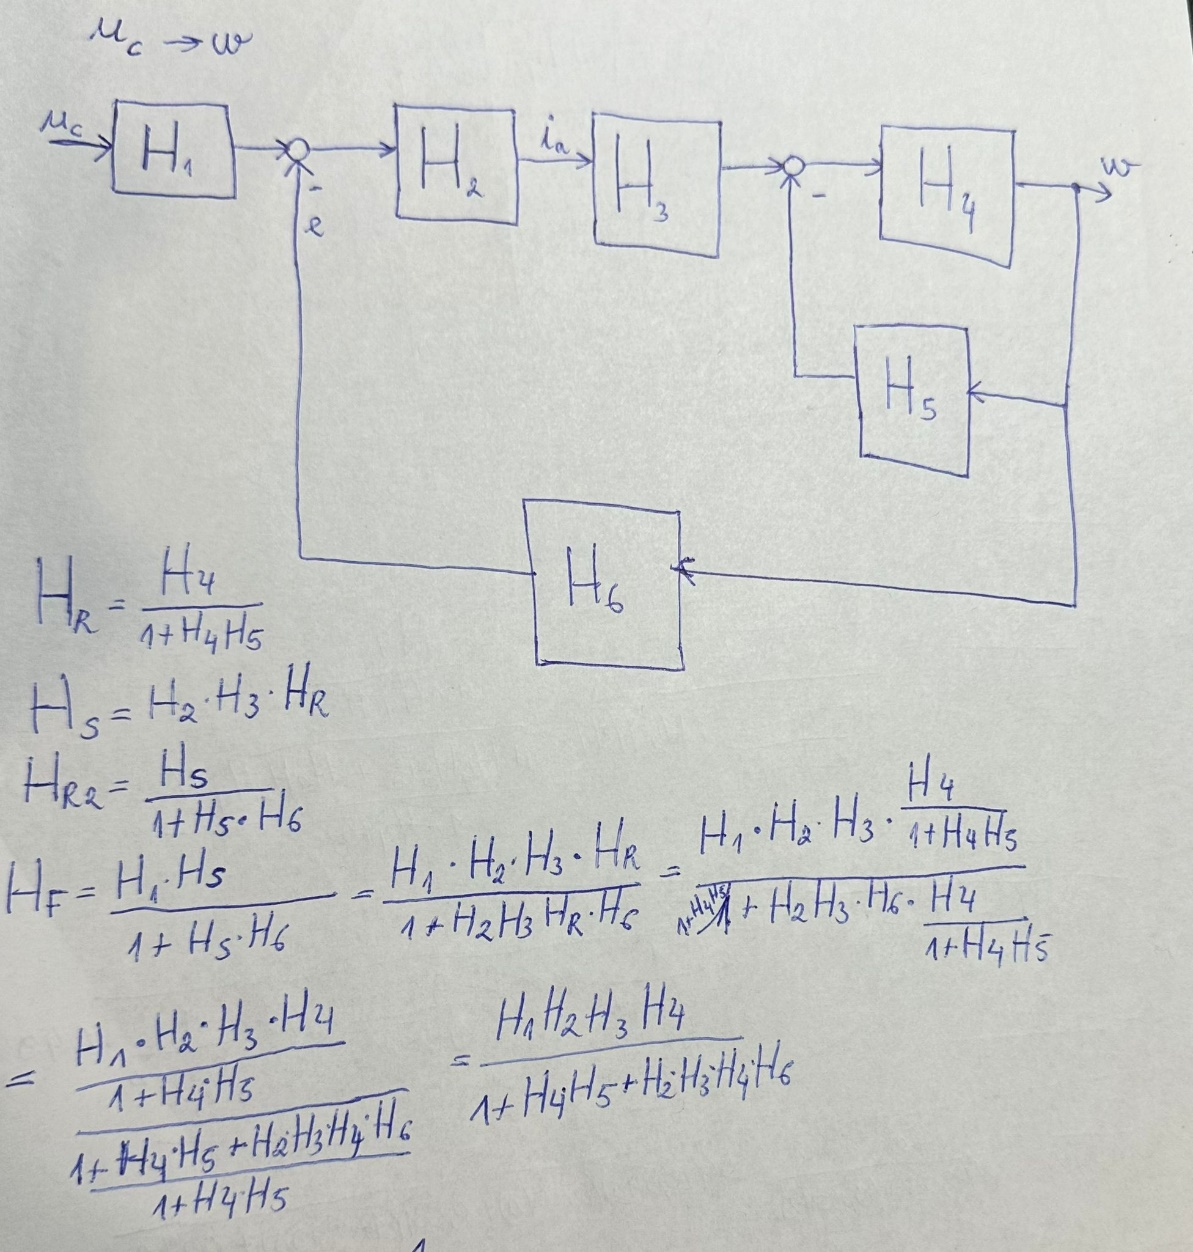 u_c → w
u_c H_1 H_2 i_a H_3 H_4 w
- -
e
H_5
H_6
H_R = H_4 / (1+H_4H_5)
H_S = H_2·H_3·H_R
H_R2 = H_S / (1+H_S·H_6)
H_F = H_1·H_S / (1+H_S·H_6) = H_1·H_2·H_3·H_R / (1+H_2H_3H_R·H_6) = (H_1·H_2·H_3·H_4/(1+H_4H_5)) / (1+H_2H_3·H_6·H_4/(1+H_4H_5))
= (H_1·H_2·H_3·H_4/(1+H_4·H_5)) / ((1+H_4·H_5+H_2·H_3·H_4·H_6)/(1+H_4·H_5)) = H_1H_2H_3H_4 / (1+H_4·H_5+H_2·H_3·H_4·H_6)